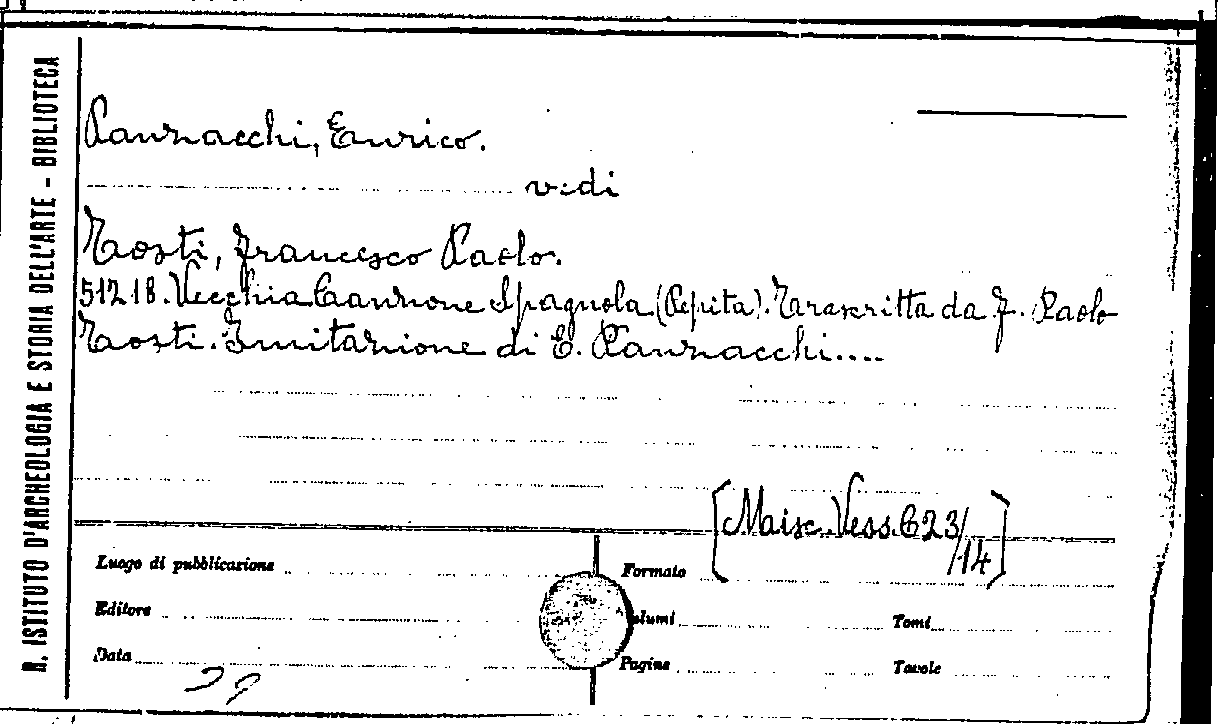 R. ISTITUTO D'ARCHEOLOGIA E STORIA DELL'ARTE - BIBLIOTECA
Panzacchi, Enrico.
vedi
Tosti, Francesco Paolo.
51218. Vecchia Canzone Spagnola (Pepita). Trascritta da F. Paolo
Tosti. Imitazione di E. Panzacchi....
[Misc. Vess. C23/14]
Luogo di pubblicazione
Formato
Editore
Volumi
Tomi
Data
Pagine
Tavole